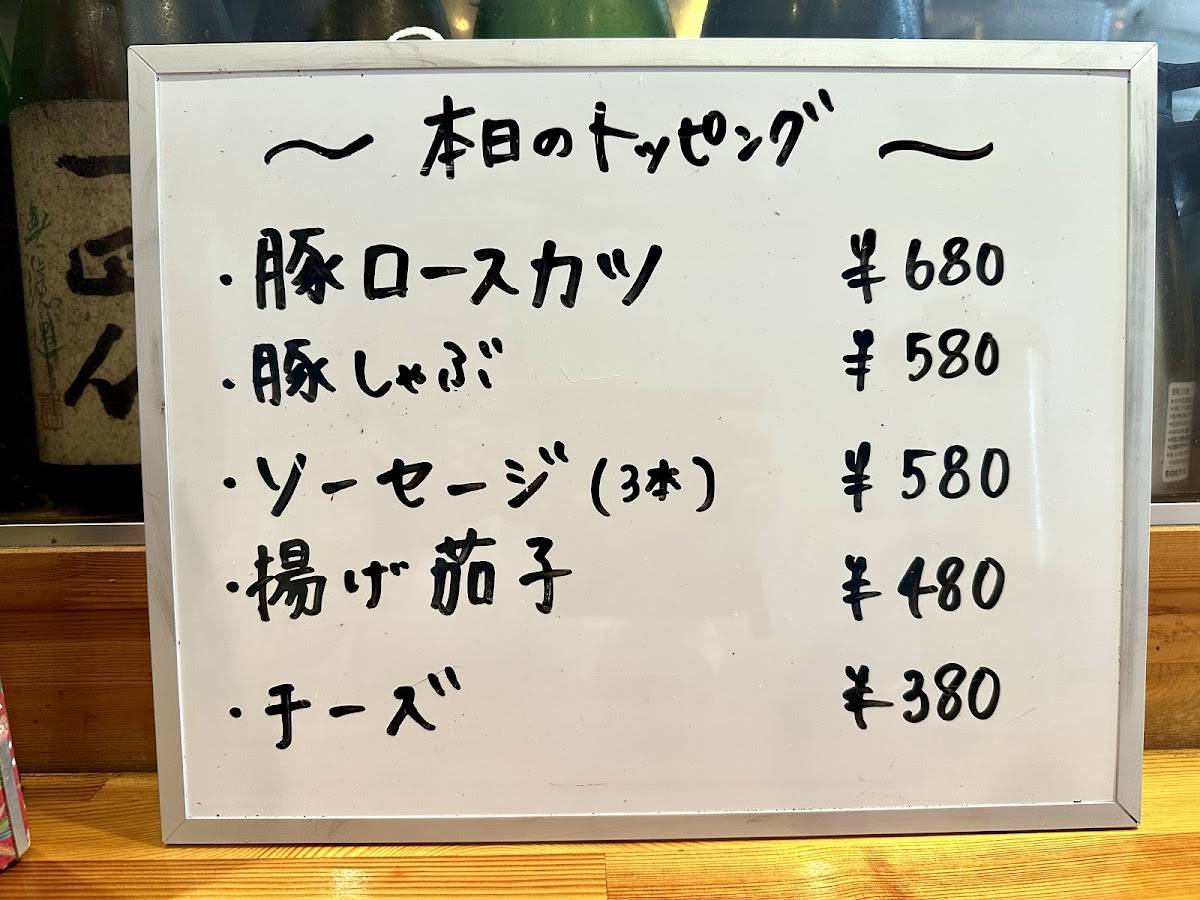 ～ 本日のトッピング ～
・豚ロースカツ ￥680
・豚しゃぶ ￥580
・ソーセージ(3本) ￥580
・揚げ茄子 ￥480
・チーズ ￥380